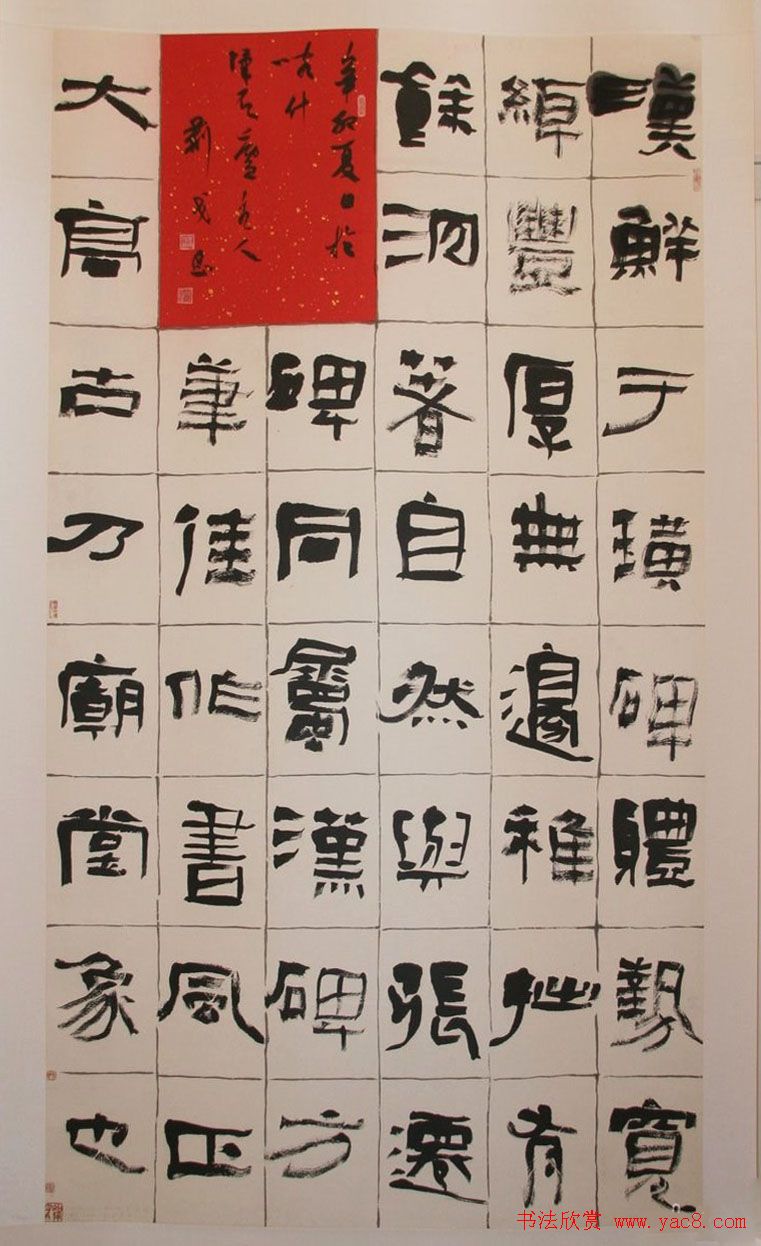 漢鮮于璜碑體勢寬
綽豐厚無邊稚拙有
餘汈著自然與張遷
碑同屬漢碑方
筆佳作書風正
大高古乃廟堂象也
辛卯夏日於
喀什
人
書法欣赏 www.yac8.com